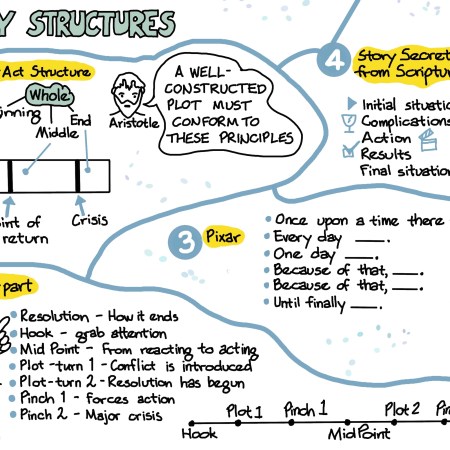 Y STRUCTURES
Act Structure
Whole
End
Middle
Crisis
return
Aristotle
A WELL-
CONSTRUCTED
PLOT MUST
CONFORM TO
THESE PRINCIPLES
4
Story Secret
from Scriptu
Initial situatio
Complications
Action
Results
Final situation
3
Pixar
Once upon a time there
Every day ____.
One day ____.
Because of that, ____.
Because of that, ____.
Until finally ____.
part
Resolution - How it ends
Hook - grab attention
Mid Point - From reacting to acting
Plot-turn 1 - Conflict is introduced
Plot-turn 2 - Resolution has begun
Pinch 1 - forces action
Pinch 2 - Major crisis
Plot 1 Pinch 1 Plot 2 Pin
Hook MidPoint